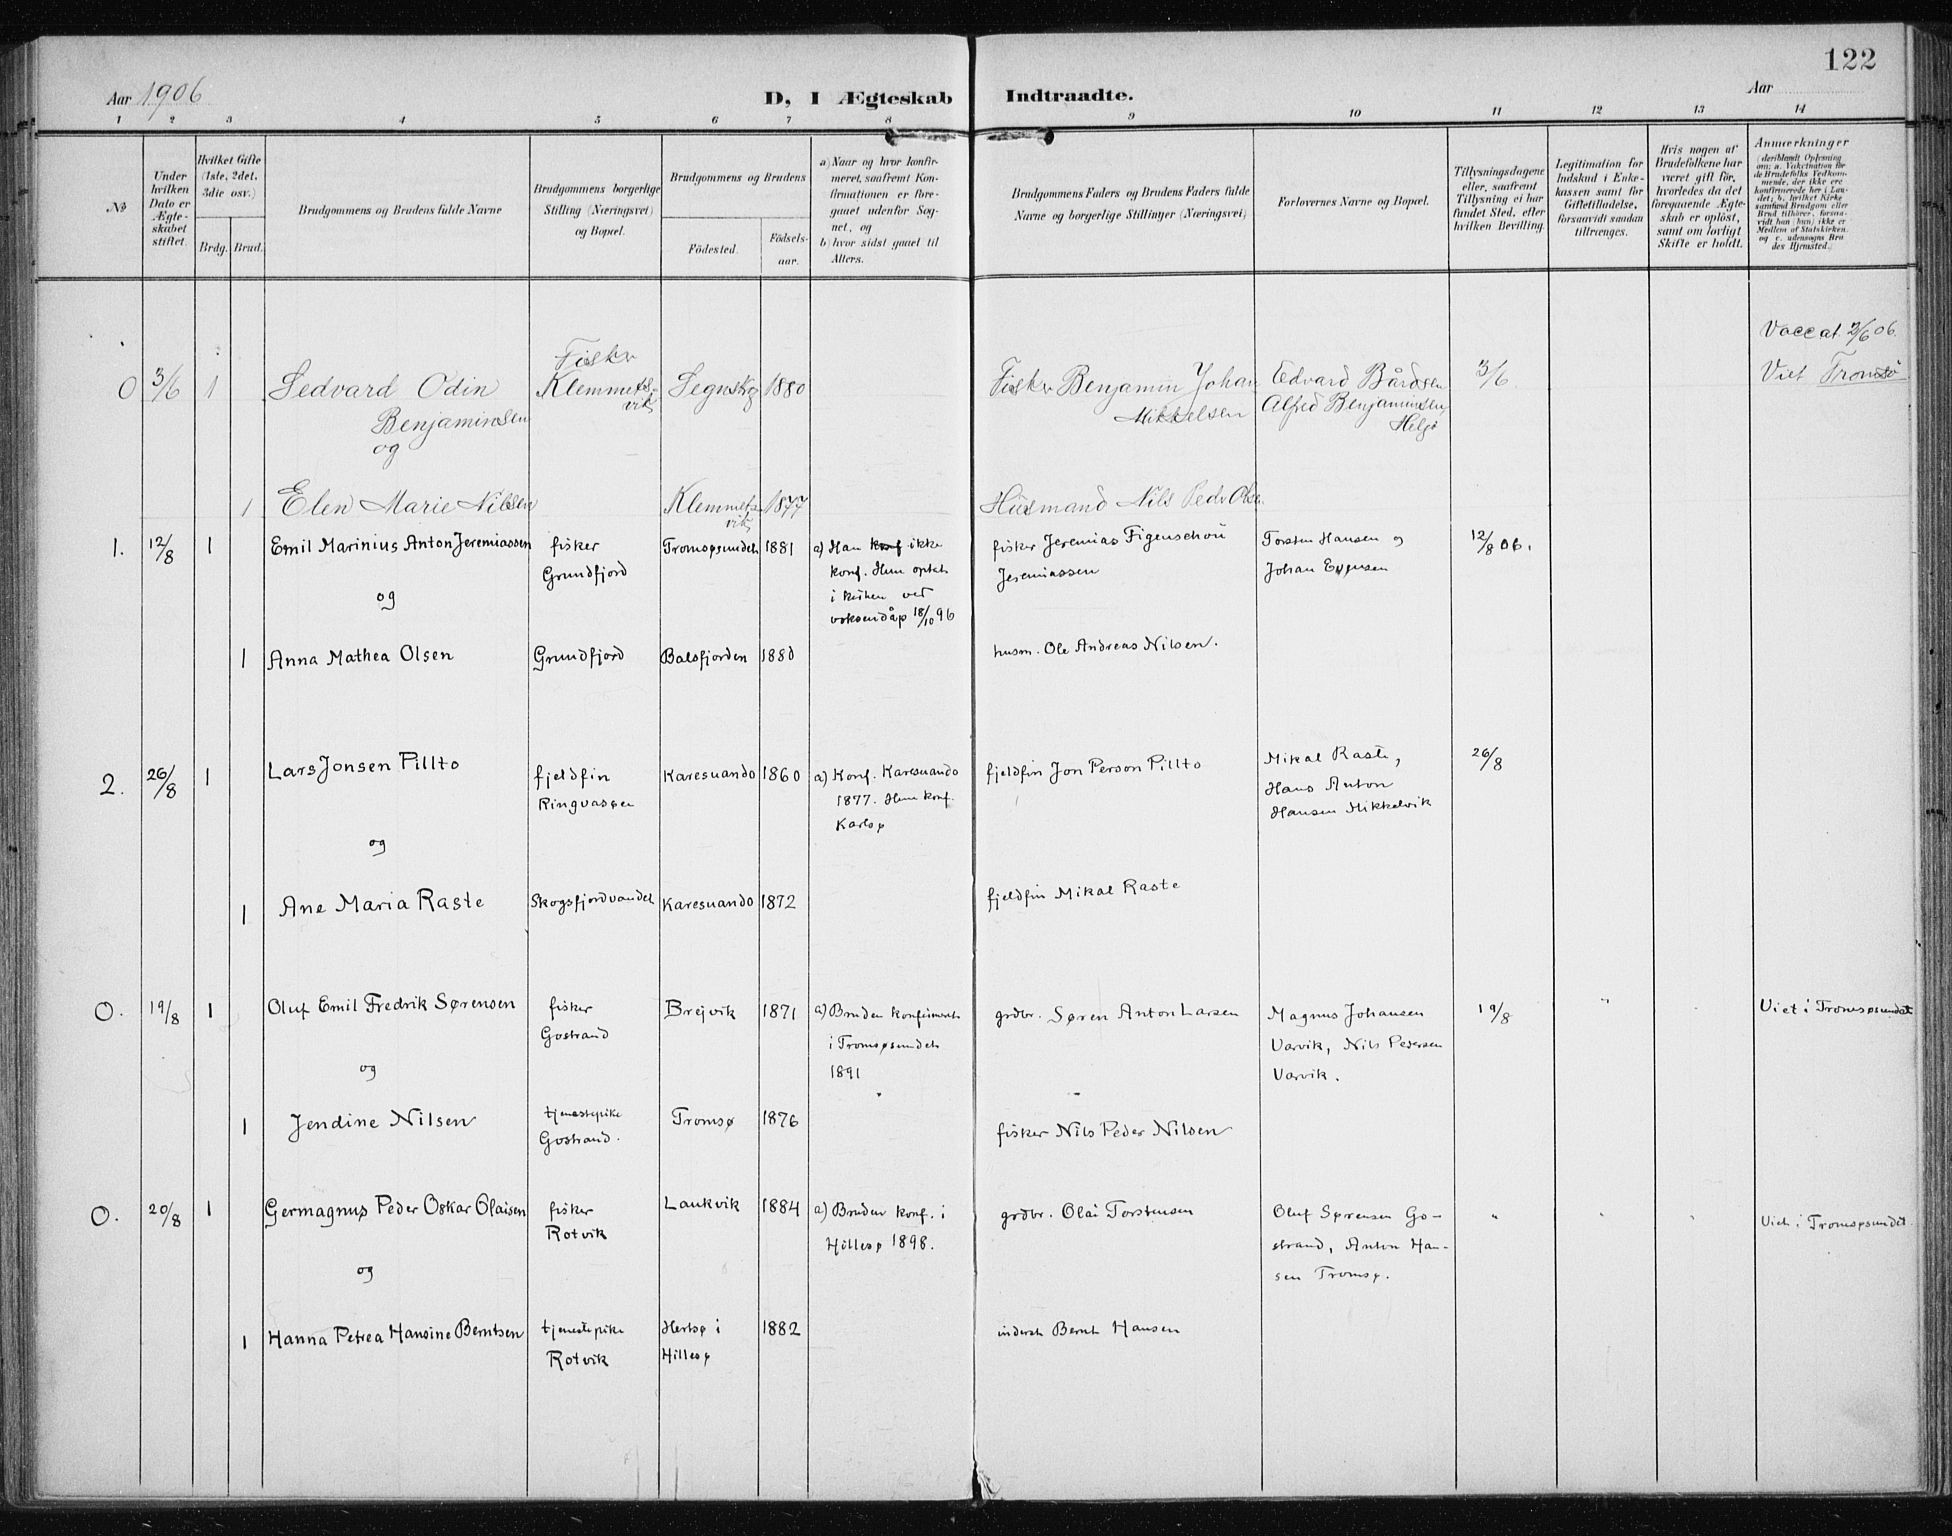 122
Aar 1906
D, I Ægteskab Indtraadte.
Aar
1 2 3 4 5 6 7 8 9 10 11 12 13 14
No
Under hvilken Dato er Ægteskabet stiftet.
Hvilket Gifte (1ste, 2det, 3die osv.)
Brdg. Brud.
Brudgommens og Brudens fulde Navne
Brudgommens borgerlige Stilling (Næringsvei) og Bopæl.
Brudgommens og Brudens
Fødested.
Fødselsaar.
a) Naar og hvor konfirmeret, saafremt Konfirmationen er foregaaet udenfor Sognet, og
b) hvor sidst gaaet til Alters.
Brudgommens Faders og Brudens Faders fulde Navne og borgerlige Stillinger (Næringsvei)
Forlovernes Navne og Bopæl.
Tillysningsdagene eller, saafremt Tillysning ei har fundet Sted, efter hvilken Bevilling.
Legitimation for Indskud i Enkekassen samt for Giftetilladelse, forsaavidt saadan tiltrænges.
Hvis nogen af Brudefolkene har været gift før, hvorledes da det foregaaende Ægteskab er opløst, samt om lovligt Skifte er holdt.
Anmærkninger
(deriblandt Oplysning om: a. Vakcination for de Brudefolks Vedkommende, der ikke ere konfirmerede her i Landet; b. hvilket Kirkesamfund Brudgom eller Brud tilhører, forsaavidt han (hun) ikke er Medlem af Statskirken, og c. udensogns Brudes Hjemsted.)
Vaccat 2/6 06.
Fisker
0 3/6 1 Sedvard Odin Klemmets- 1880 Fisker Benjamin Johan Edvard Bårdsen 3/6 Viet Tromsø
Benjaminsen vik Mikkelsen Alfred Benjaminsen
og Helgø
1 Elen Marie Nilsen Klemmets- 1877 Husmand Nils Pedr Olsen
vik
1. 12/8 1 Emil Marinius Anton Jeremiassen fisker Tromsøsundet 1881 a) Han konf ikke fisker Jeremias Figenschou Torsten Hansen og 12/8 06.
Grundfjord konf. Hun optat Jeremiassen Johan Evensen
og i kirken ved
voksendåp 18/10 96
1 Anna Mathea Olsen Grundfjord Balsfjorden 1880 husm. Ole Andreas Nilsen.
2. 26/8 1 Lars Jonsen Pillto fjeldfin Karesuando 1860 a) Konf. Karesuando fjeldfin Jon Person Pillto Mikal Raste, 26/8
Ringvassøen 1877. Hun konf. Hans Anton
og Karlsø Hansen Mikkelvik
1 Ane Maria Raste Skogsfjordvandet Karesuando 1872 fjeldfin Mikal Raste
0. 19/8 1 Oluf Emil Fredrik Sørensen fisker Brejvik 1871 a) Bruden konfirmert grdbr. Søren Anton Larsen Magnus Johansen 19/8 " Viet i Tromsøsundet
Gostrand i Tromsøsundet Varvik, Nils Pedersen
og 1891 Varvik.
1 Jendine Nilsen tjenestepike Tromsø 1876 fisker Nils Peder Nilsen
Gostrand.
0. 20/8 1 Germagnus Peder Oskar Olaisen fisker Laukvik 1884 a) Bruden konf. i grdbr. Olai Torstensen Oluf Sørensen Go- " " " Viet i Tromsøsundet
Rotvik Hillesø 1898. strand, Anton Han-
og sen Tromsø.
1 Hanna Petrea Hansine Berntsen tjenestepike i 1882 inderst Bernt Hansen
Rotvik Hillesø